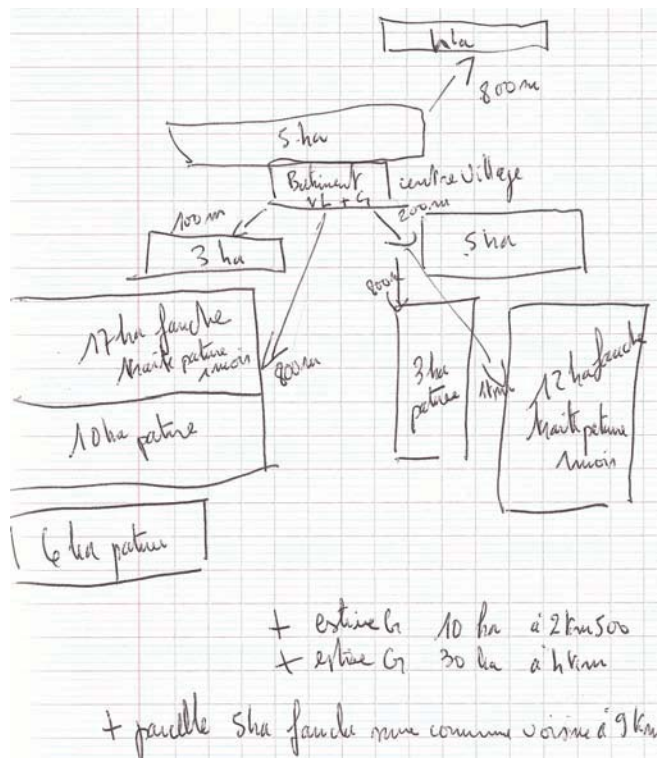 4 ha
800m
5 ha
Batiment
VL + G
centre village
100m
200m
3 ha
5 ha
17 ha fauche
traite pature
1 mois
800m
800m
3 ha
pature
1km
12 ha fauche
traite pature
1 mois
10 ha pature
6 ha pature
+ estive G 10 ha à 2km500
+ estive G 30 ha à 4km
+ parcelle 5ha fauche sur commune voisine à 9km